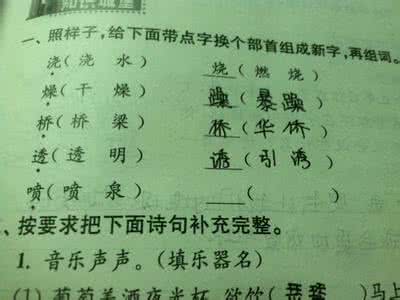 知识城堡
一、照样子,给下面带点字换个部首组成新字,再组词。
浇(浇 水) 烧(燃 烧)
燥(干 燥) 躁(暴 躁)
桥(桥 梁) 侨(华 侨)
透(透 明) 诱(引 诱)
喷(喷 泉) ( )
、按要求把下面诗句补充完整。
1. 音乐声声。(填乐器名)
(1)葡萄美酒夜光杯,欲饮(琵琶)马上